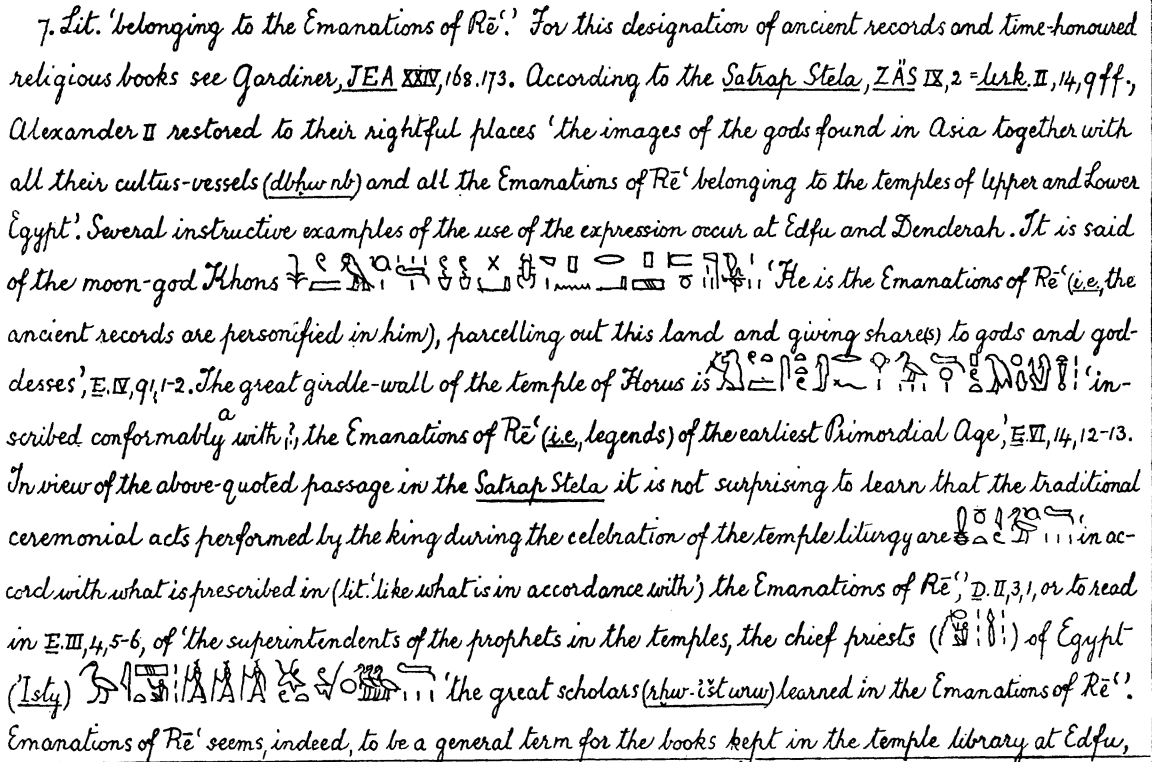 7. Lit. 'belonging to the Emanations of Rēʿ.' For this designation of ancient records and time-honoured
religious books see Gardiner, JEA XXIV, 168.173. According to the Satrap Stela, ZÄS IX, 2 = Urk. II, 14, 9 ff.,
Alexander II restored to their rightful places 'the images of the gods found in Asia together with
all their cultus-vessels (dbḥw nb) and all the Emanations of Rēʿ belonging to the temples of Upper and Lower
Egypt'. Several instructive examples of the use of the expression occur at Edfu and Denderah. It is said
of the moon-god Khons 'He is the Emanations of Rēʿ (i.e., the
ancient records are personified in him), parcelling out this land and giving share(s) to gods and god-
desses', E. IV, 91, 1-2. The great girdle-wall of the temple of Horus is 'in-
scribed conformably with, the Emanations of Rēʿ (i.e., legends) of the earliest Primordial Age', E. VI, 14, 12-13.
a
In view of the above-quoted passage in the Satrap Stela it is not surprising to learn that the traditional
ceremonial acts performed by the king during the celebration of the temple liturgy are in ac-
cord with what is prescribed in (lit. 'like what is in accordance with') the Emanations of Rēʿ', D. II, 3, 1, or to read
in E. III, 4, 5-6, of 'the superintendents of the prophets in the temples, the chief priests () of Egypt
('Isty) 'the great scholars (rḫw-išt wrw) learned in the Emanations of Rēʿ'.
Emanations of Rēʿ seems, indeed, to be a general term for the books kept in the temple library at Edfu,